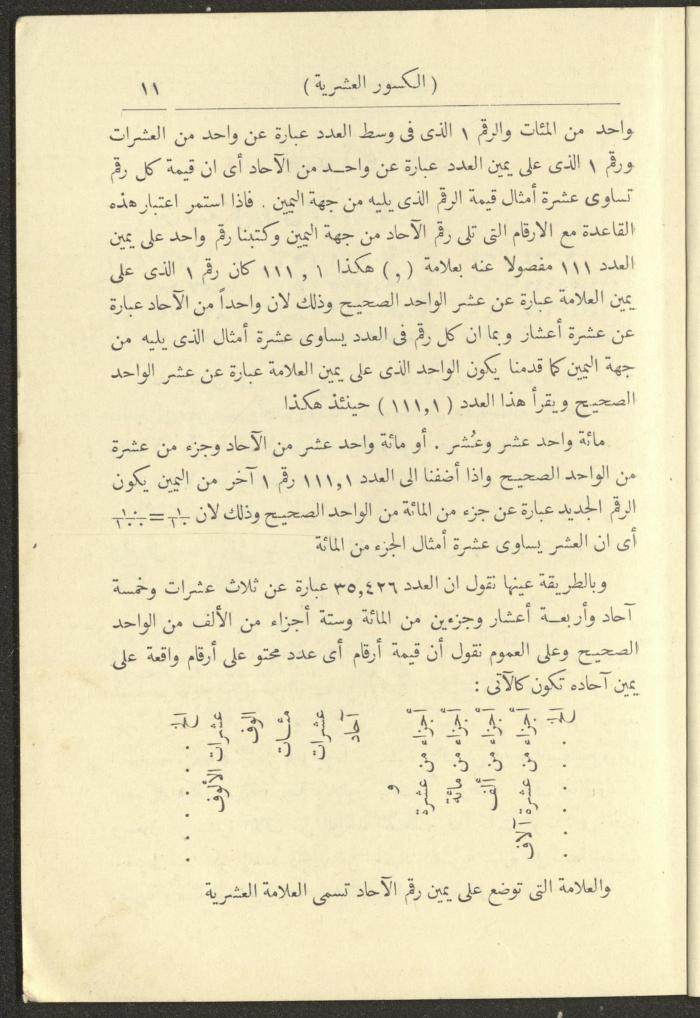 ( الكسور العشرية ) ١١
واحد من المئات والرقم ١ الذى فى وسط العدد عبارة عن واحد من العشرات
ورقم ١ الذى على يمين العدد عبارة عن واحـد من الآحاد أى ان قيمة كل رقم
تساوى عشرة أمثال قيمة الرقم الذى يليه من جهة اليمين . فاذا استمر اعتبار هذه
القاعدة مع الارقام التى تلى رقم الآحاد من جهة اليمين وكتبنا رقم واحد على يمين
العدد ١١١ مفصولا عنه بعلامة (,) هكذا ١ , ١١١ كان رقم ١ الذى على
يمين العلامة عبارة عن عشر الواحد الصحيح وذلك لان واحداً من الآحاد عبارة
عن عشرة أعشار وبما ان كل رقم فى العدد يساوى عشرة أمثال الذى يليه من
جهة اليمين كما قدمنا يكون الواحد الذى على يمين العلامة عبارة عن عشر الواحد
الصحيح ويقرأ هذا العدد ( ١١١,١ ) حينئذ هكذا
مائة واحد عشر وعُشر . أو مائة واحد عشر من الآحاد وجزء من عشرة
من الواحد الصحيح واذا أضفنا الى العدد ١١١,١ رقم ١ آخر من اليمين يكون
الرقم الجديد عبارة عن جزء من المائة من الواحد الصحيح وذلك لان ١/١٠ = ١٠/١٠٠
أى ان العشر يساوى عشرة أمثال الجزء من المائة
وبالطريقة عينها نقول ان العدد ٣٥,٤٢٦ عبارة عن ثلاث عشرات وخمسة
آحاد وأربعـة أعشار وجزءين من المائة وستة أجزاء من الألف من الواحد
الصحيح وعلى العموم نقول أن قيمة أرقام أى عدد محتو على أرقام واقعة على
يمين آحاده تكون كالآتى :
الخ . . . . . .
أجزاء من عشرة آلاف
أجزاء من ألف
أجزاء من مائة
أجزاء من عشرة
و
آحاد
عشرات
مئـات
الوف
عشرات الألوف
الخ . . . . . .
والعلامة التى توضع على يمين رقم الآحاد تسمى العلامة العشرية